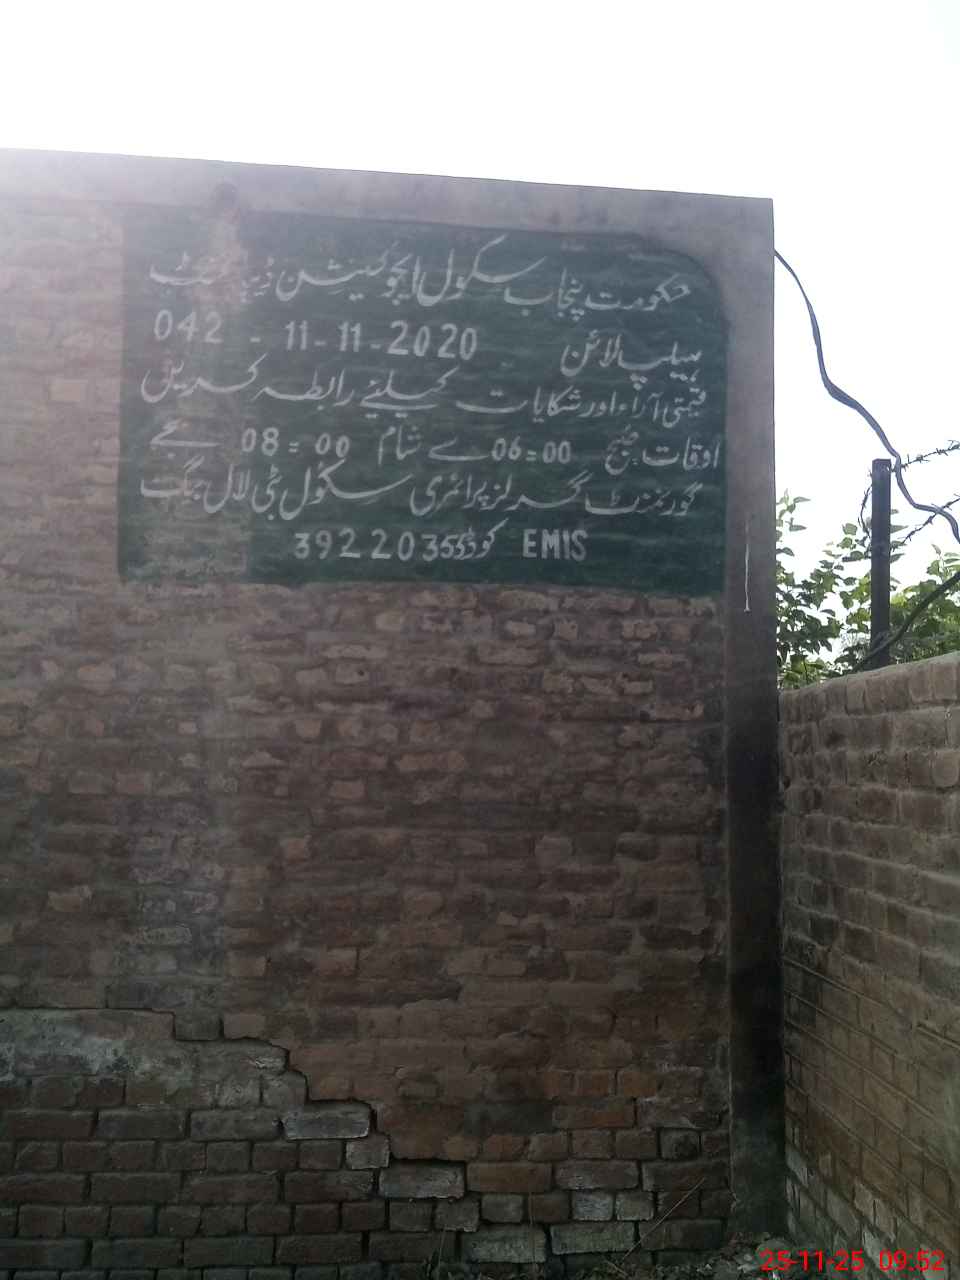 حکومت پنجاب سکول ایجوکیشن ڈیپارٹمنٹ
ہیلپ لائن 042 - 11-11-2020
قیمتی آراء اور شکایات کیلئے رابطہ کریں
اوقات صبح 06=00 سے شام 08=00 بجے
گورنمنٹ گرلز پرائمری سکول ٹبی لال بیگ
EMIS کوڈ 39220355
25-11-25 09:52